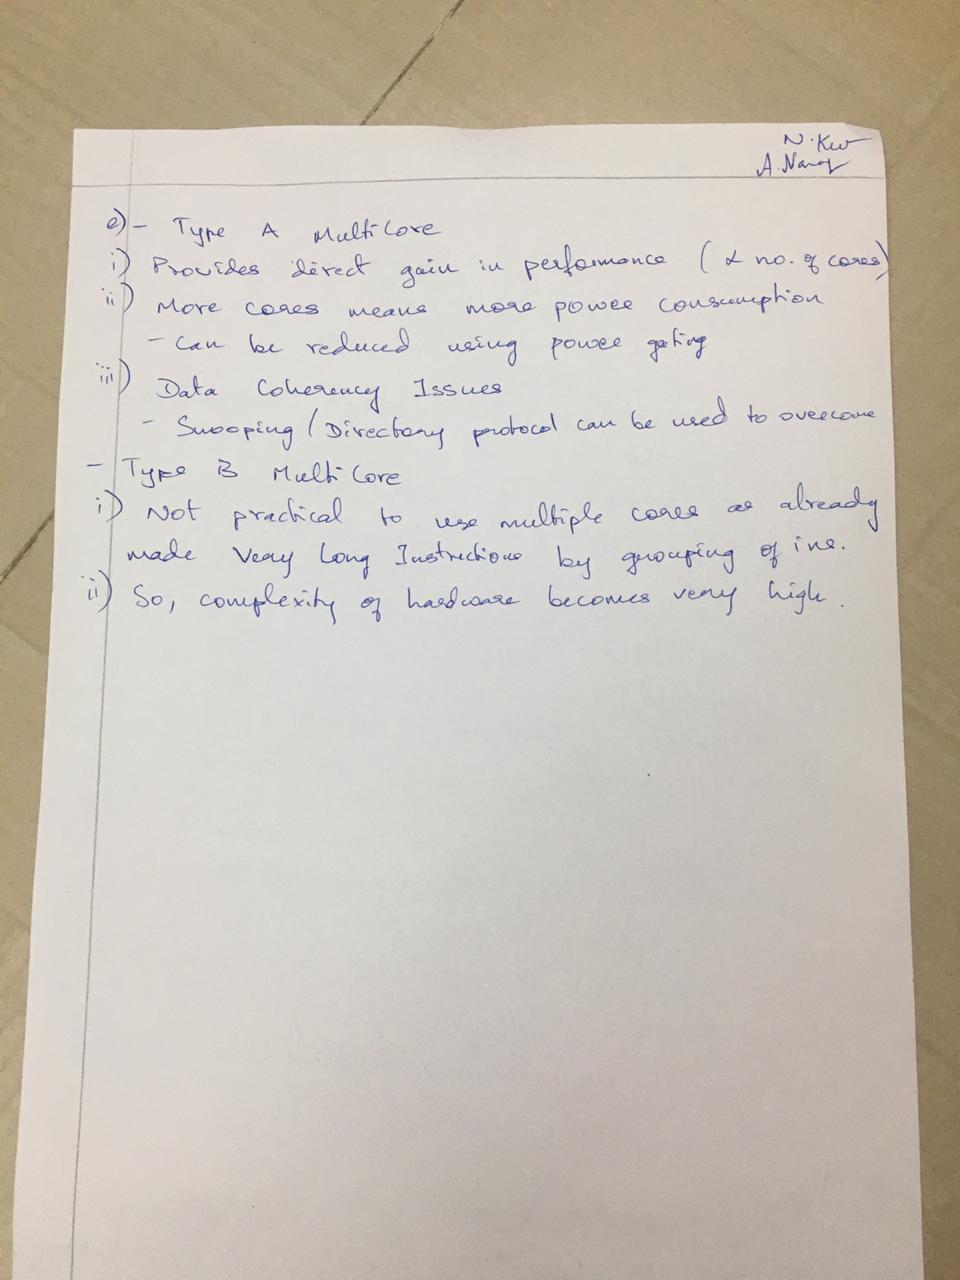 N. Ku
A. Narag
e) - Type A MultiCore
i) Provides direct gain in performance (α no. of cores)
ii) More cores means more power consumption
- Can be reduced using power gating
iii) Data Coherency Issues
- Snooping / Directory protocol can be used to overcome
- Type B MultiCore
i) Not practical to use multiple cores as already
made Very Long Instructions by grouping of ins.
ii) So, complexity of hardware becomes very high.